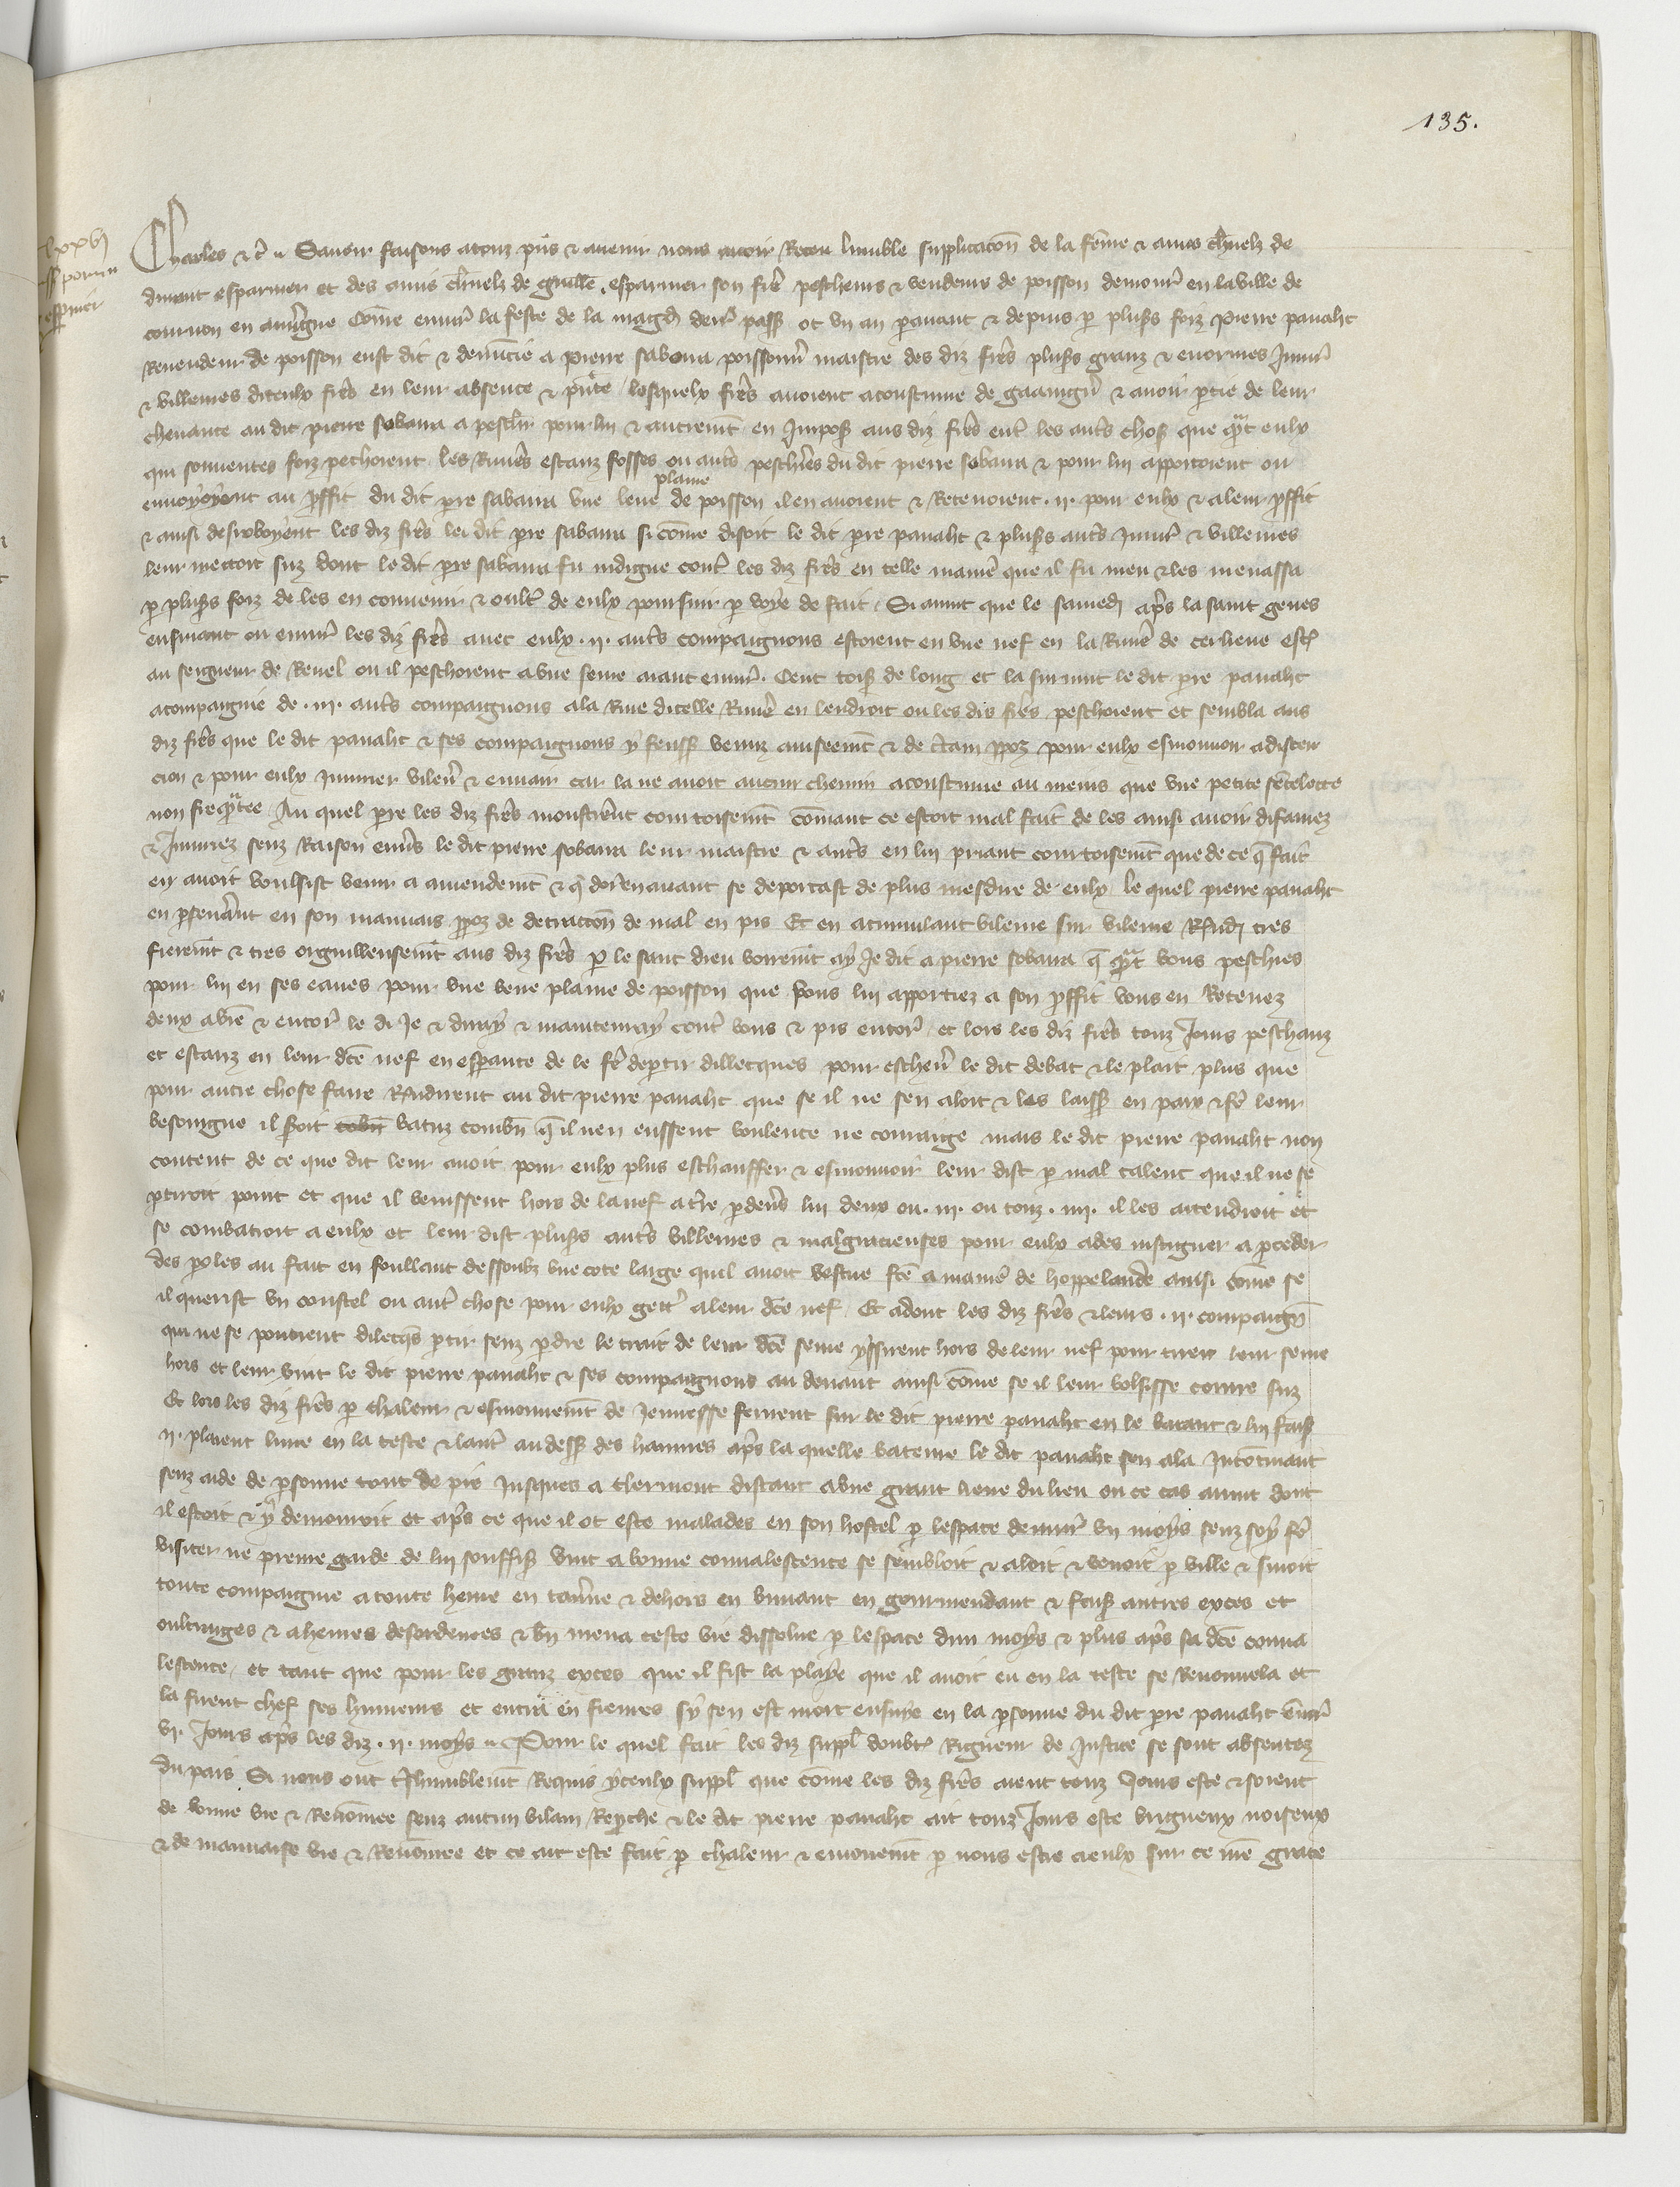 135.
Charles &c. Savoir faisons a touz pñs & avenir nous avoir Receu lumble supplicacoñ de la feme & amis charnelz de
durant esparnier et des amis charnelz de guille. esparnier son frere pescheurs & vendeurs de poisson demour en la ville de
cournon en auvgne Côme envir la feste de la magd derr passe ot un an paravant & depuis p pluss foiz Pierre panaht
Revendeur de poisson eust dit & denuncie a pierre savoua poissonn maistre des diz freres pluss granz & enormes Injur
& villenies diceulx freres en leur absence & pñte lesquelx freres avoient acoustume de gaaingn & avoir ptie de leur
chevance au dit pierre savoua a pescher pour lui & autremt en Imposs aus diz freres entr les autres choses que qt eulx
qui souventes foiz pechoient les Rivieres estanz fosses ou autres pescheries du dit pierre savoua & pour lui apportoient ou
envoyoyent au pffit du dit pre savoua une leue plaine de poisson il en avoient & Retenoient .ii. pour eulx & a leur pffit
& ainsi desroboyent les diz freres le dit pre savoua si côme disoit le dit pre panaht & pluss autres Injur & villenies
leur mectoit suz dont le dit pre savoua fu indigne contr les diz freres en telle manie que il fu meu & les menassa
p pluss foiz de les en convenir & oultr de eulx poursuir p voye de fait. Si avint que le samedi aprs la saint genes
ensuivant ou envir les diz freres avec eulx .ii. autres compaignons estoient en une nef en la Riviere de cerlieue est
au seigneur de Revel ou il peschoient a une seine aiant envir. Cent toises de long et la survint le dit pre panaht
acompaignie de .iii. autres compaignons a la Rive dicelle Riviere en lendroit ou les dis freres peschoient et sembla aus
diz freres que le dit panaht & ses compaignons y feussent venuz aviseemt & de ctain ppoz pour eulx esmouvoir a discen
cion & pour eulx Injurier vilen & envair car la ne avoit aucun chemin acoustume au meins que une petite sentelotte
non freqtee Au quel pre les diz freres monstrent courtoisemt cômant ce estoit mal fait de les ainsi avoir difamez
& Injuriez senz Raison envs le dit pierre sovana leur maistre & autres en lui priant courtoisemt que de ce q fait
en avoit voulsist venir a amendemt & q dorenavant se deportast de plus mesdire de eulx le quel pierre panaht
en pseverant en son mauvais ppoz de detraccon de mal en pis Et en acumulant vilenie sur vilenie Rndi tres
fieremt & tres orguilleusemt aus diz freres p le sanc dieu voiremt ay Je dit a pierre sovana q qt vous peschies
pour lui en ses eaues pour une leue plaine de poisson que vous lui apportiez a son pffit vous en Retenez
deux a vie & encor le di Je & diray & maintenray contr vous & pis encor. et lors les diz freres touz Jours peschanz
et estanz en leur dce nef en espance de le fe deptir dillecques pour eschev le dit debat & le plait plus que
pour autre chose faire Rndirent au dit pierre panaht que se il ne sen aloit & les laiss en paix & fe leur
besoingne il seroit batuz combn q il nen eussent voulente ne couraige mais le dit pierre panaht non
content de ce que dit leur avoit pour eulx plus eschauffer & esmouvoir leur dist p mal talent que il ne se
ptiroit point et que il venissent hors de la nef a tre pdevs lui deux ou .iii. ou touz .iiii. il les attendroit et
se combatroit a eulx et leur dist pluss autres villenies & malgracieuses pour eulx ades instiguer a pceder
des poles au fait en foullant dessoubz une cote large quil avoit vestue fce a maniere de hoppelande ainsi come se
il querist un coustel ou autr chose pour eulx gettr a leur dce nef. Et adont les diz freres & leurs .ii. compaign
qui ne se povoient dilecqs ptir senz pdre le trait de leur dce seine yssirent hors de leur nef pour tirer leur seine
hors et leur vint le dit pierre panaht & ses compaignons au devant ainsi côme se il leur volsisse corure suz
Et lors les diz freres p chaleur & esmouvemt de Jeunesse ferirent sur le dit pierre panaht en le batant & lui fais
.ii. plaient lune en la teste & lautr au dess des hanines aprs la quelle bateure le dit panaht sen ala Incotinant
senz aide de psonne tout de pie Jusques a clermont distant a une grant lieue du lieu ou ce cas avint dont
il estoit & y demouroit et aprs ce que il ot este malades en son hostel p lespace denvir un moys senz soy fe
visiter ne prenre garde de lui souffiss vint a bonne convalescence se sembloit & aloit & venoit p ville & suioit
toute compaignie a toute heure en taverne & dehors en buvant en gourmendant & faiss autres exces et
oultrages & a heures desordences & bn mena ceste vie dissolue p lespace dun moys & plus aprs sa dce conva
lescence, et tant que pour les granz exces que il fist la playe que il avoit eu en la teste se Renouvela et
la fuent chef ses humeurs et entra en fievres sy sen est mort ensuye en la psonne du dit pre panaht envir
vi. Jours aprs les diz .ii. moys. Pour le quel fait les diz suppl doubt Rigueur de Justice se sont absentez
du pais Si nous ont thumblemt Requis yceulx suppl que côme les diz freres aient touz Jours este & soient
de bonne vie & Renômee senz aucun vilain Repche & le dit pierre panaht ait touz Jours este brigueux noiseux
& de mauvaise vie & Renômee et ce ait este fait p chaleur & emouvemt p nous estre a eulx sur ce nre grace